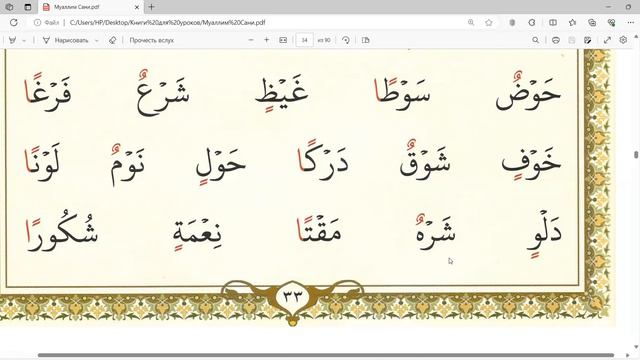 Муаллим Сани.pdf
Файл C:/Users/HP/Desktop/Книги%20для%20уроков/Муаллим%20Сани.pdf
Нарисовать Прочесть вслух 34 из 90
حَوْضٌ سَوْطًا غَيْظٍ شَرْعٌ فَرْغًا
خَوْفٍ شَوْقٌ دَرْكًا حَوْلٍ نَوْمٌ لَوْنًا
دَلْوٍ شَرْهٌ مَقْتًا نِعْمَةٍ شُكُورًا
٣٣